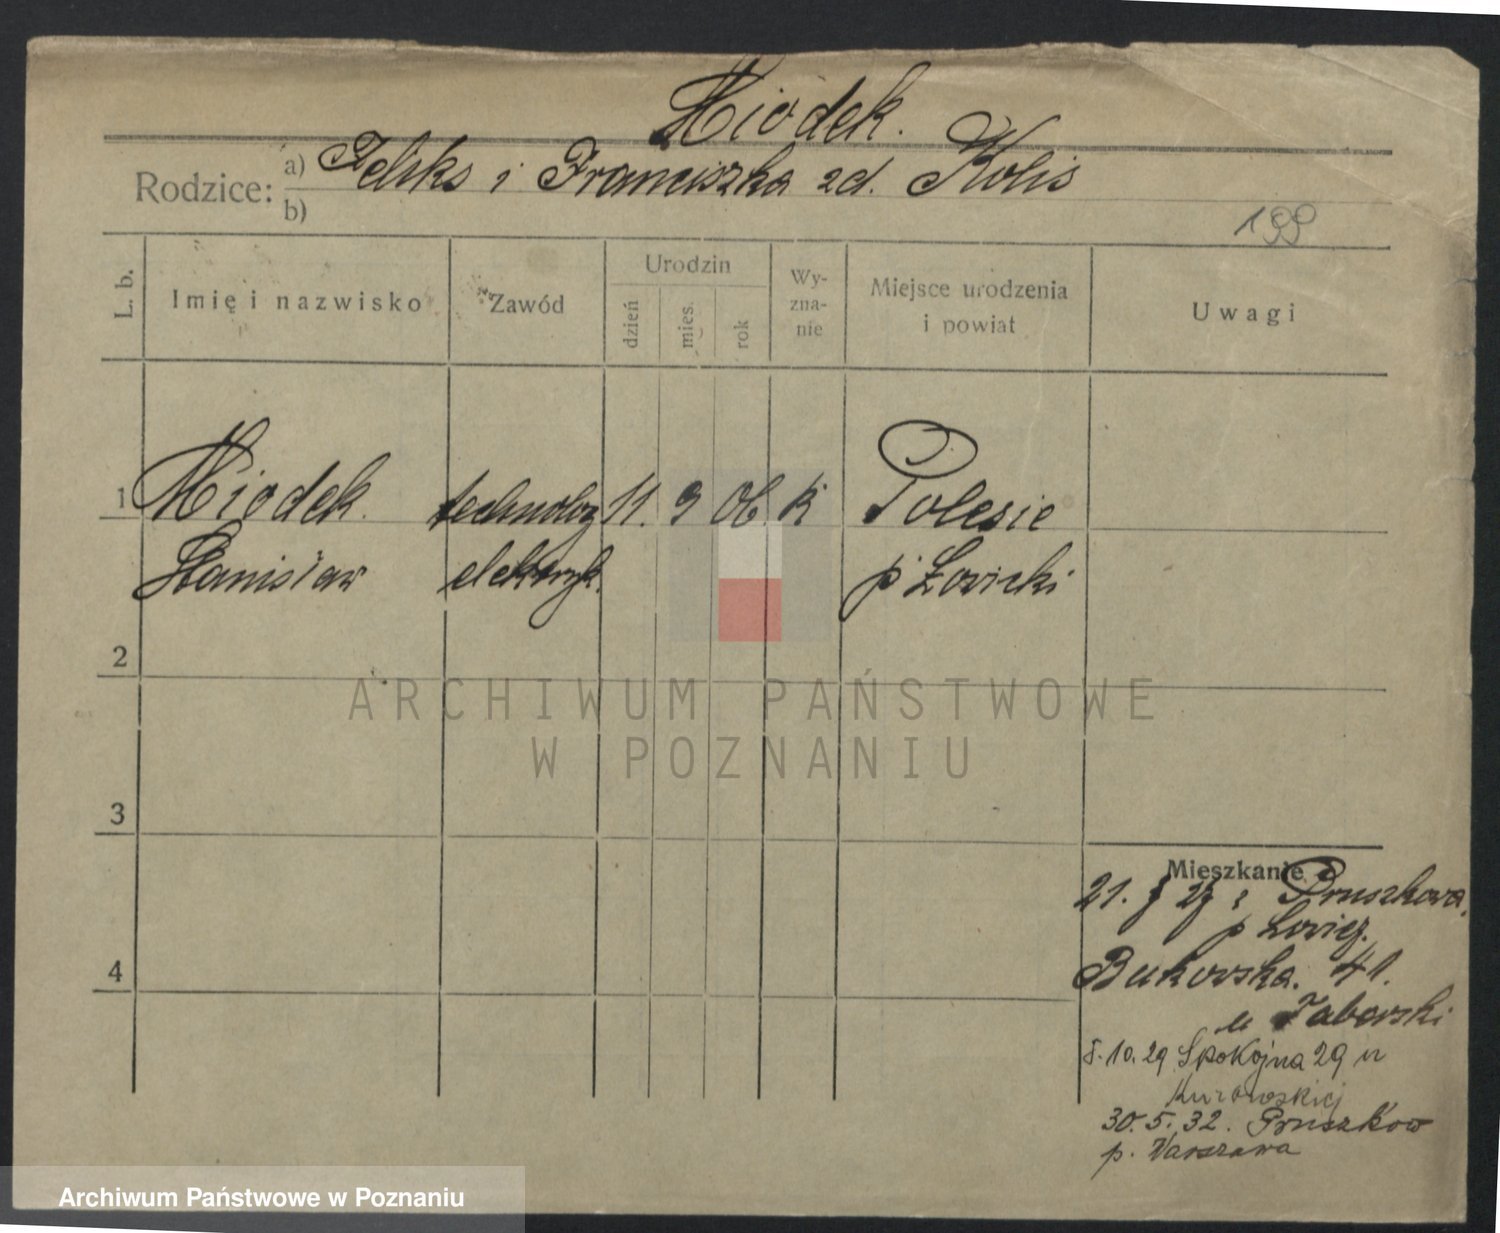 Miodek.
Rodzice: a) Feliks i Franciszka zd. Kolis
b)
199
L. b.
Imię i nazwisko
Zawód
Urodzin
dzień
mies.
rok
Wy-
zna-
nie
Miejsce urodzenia
i powiat
Uwagi
1 Miodek. technolog 11. 9 06 k Polesie
Stanisław elektryk. p Łowicki
2
3
4
ARCHIWUM PAŃSTWOWE
W POZNANIU
Mieszkanie
21. 27 z Pruszkowa,
p Łowicz.
Bukowska. 41.
u Taborski
5.10.29 Spokojna 29 u
Kurowskiej
30.5.32. Pruszków
p. Warszawa
Archiwum Państwowe w Poznaniu